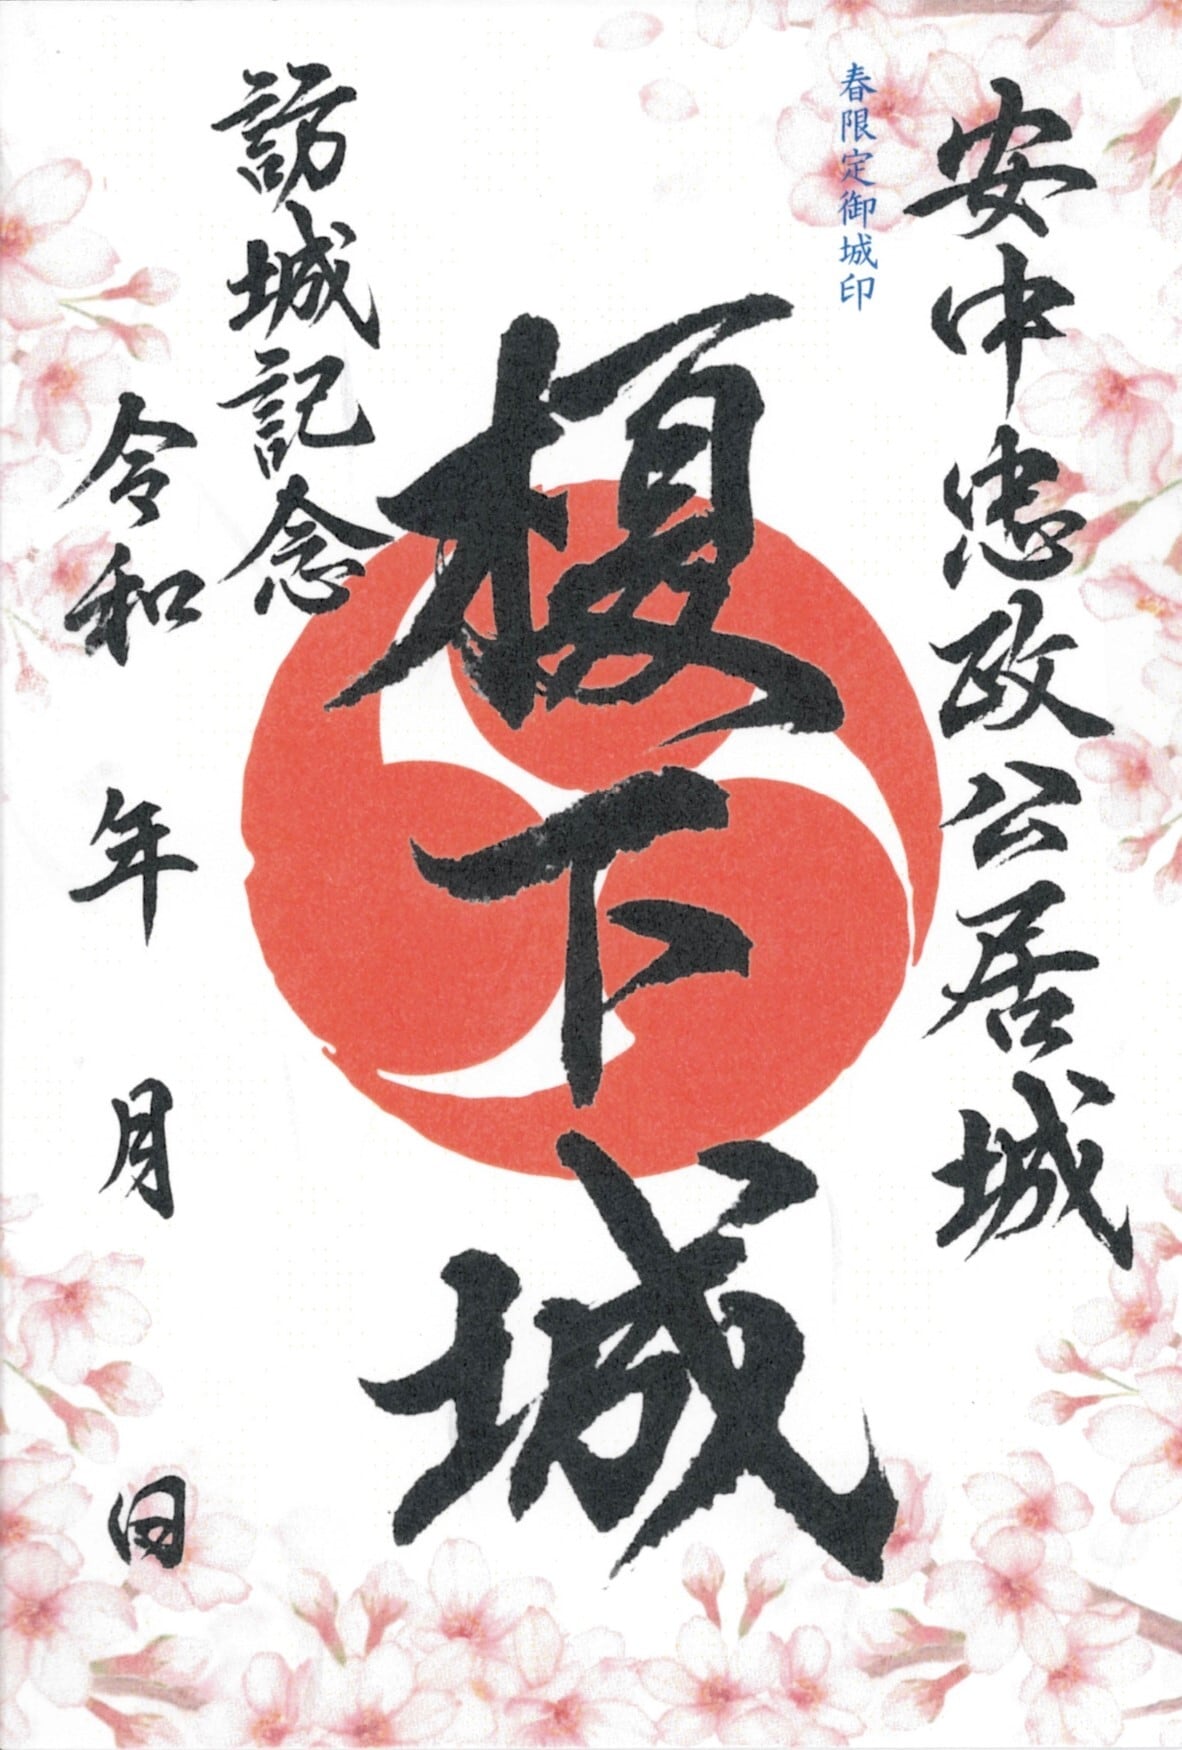 安中忠政公居城
春限定御城印
榎下城
訪城記念
令和 年 月 日